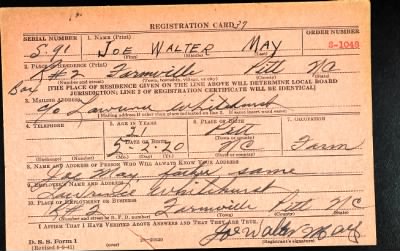 REGISTRATION CARD
SERIAL NUMBER 1. NAME (Print) ORDER NUMBER
S-91 JOE WALTER MAY S-1049
(First) (Middle) (Last)
2. PLACE OF RESIDENCE (Print)
R#2 Farmville Pitt N/C
Box
(Number and street) (Town, township, village, or city) (County) (State)
[THE PLACE OF RESIDENCE GIVEN ON THE LINE ABOVE WILL DETERMINE LOCAL BOARD
JURISDICTION; LINE 2 OF REGISTRATION CERTIFICATE WILL BE IDENTICAL]
3. MAILING ADDRESS
c/o Whitehurst
[Mailing address if other than place indicated on line 2. If same insert word same]
4. TELEPHONE 5. AGE IN YEARS 6. PLACE OF BIRTH 7. OCCUPATION
21 Pitt
DATE OF BIRTH (Town or county)
5-2-20 N/C Farm
(Exchange) (Number) (Mo.) (Day) (Yr.) (State or country)
8. NAME AND ADDRESS OF PERSON WHO WILL ALWAYS KNOW YOUR ADDRESS
Joe May father same
9. EMPLOYER'S NAME AND ADDRESS
Whitehurst
10. PLACE OF EMPLOYMENT OR BUSINESS
Farmville Pitt N/C
(Number and street or R. F. D. number) (Town) (County) (State)
I AFFIRM THAT I HAVE VERIFIED ABOVE ANSWERS AND THAT THEY ARE TRUE.
D. S. S. Form 1 Joe Walter May